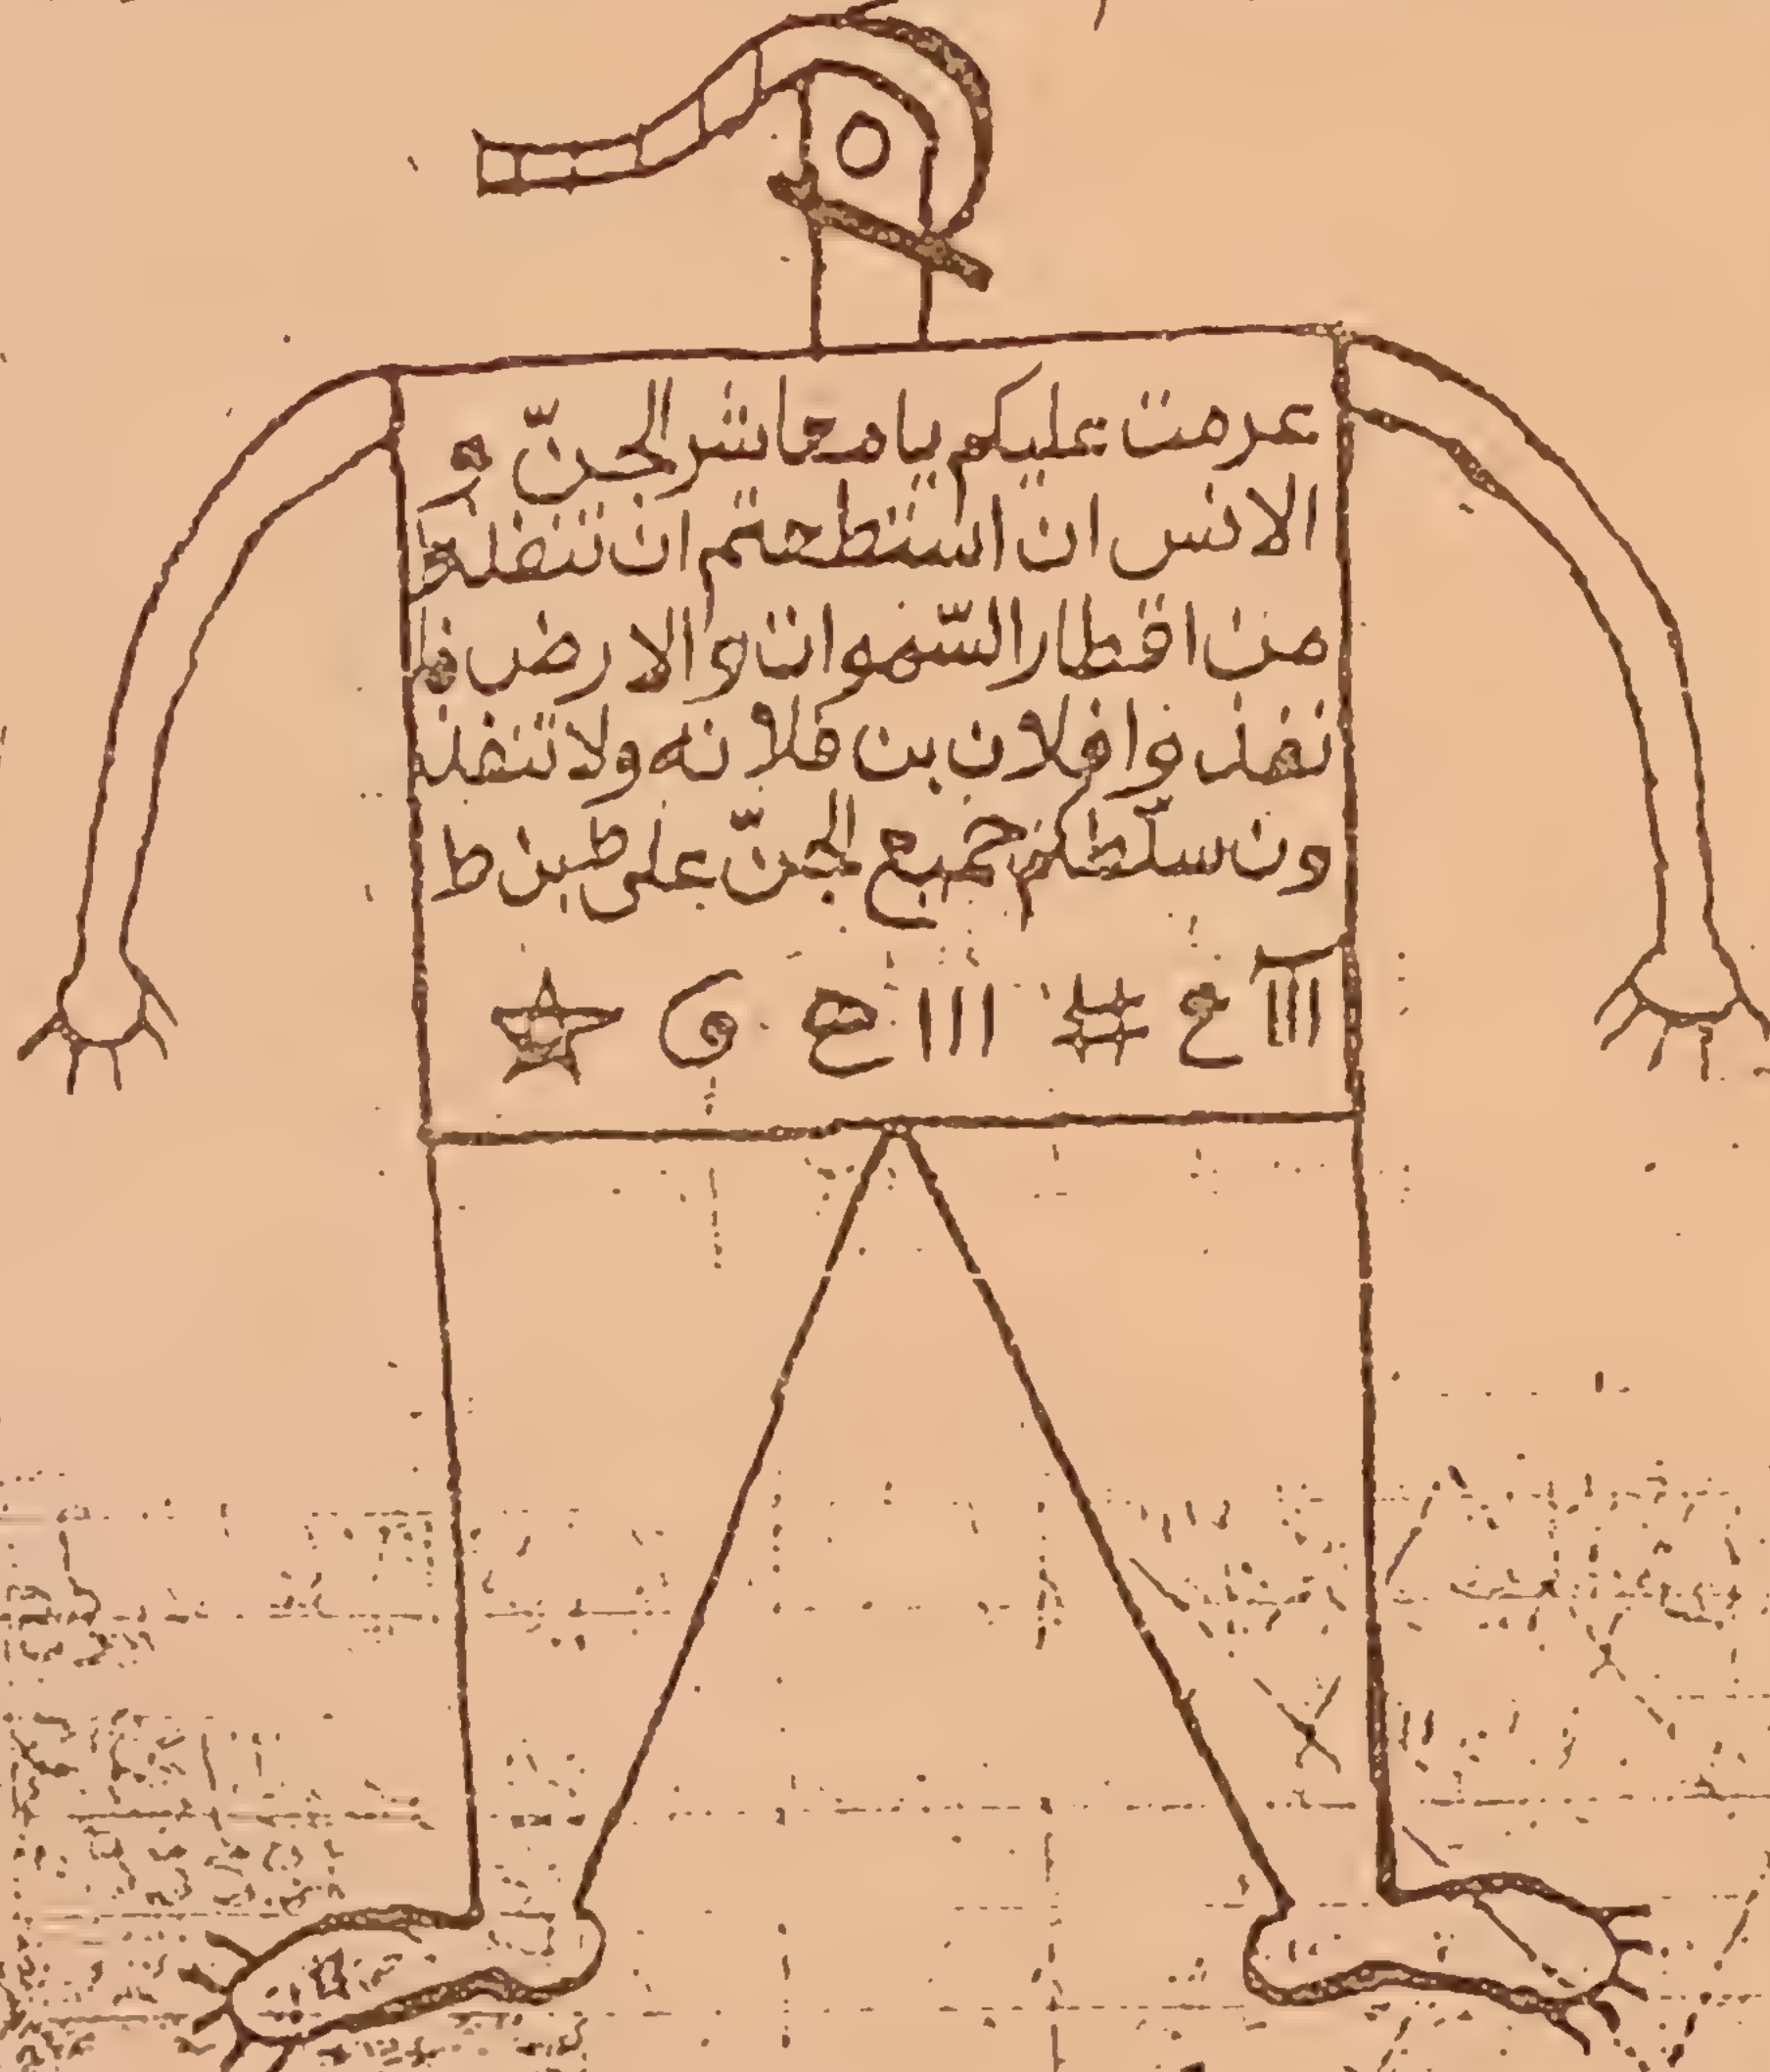 عزمت عليكم يا معاشر الجنّ و
الانس ان استطعتم ان تنفذوا
من اقطار السّموات والارض فا
نفذوا فلان بن فلانه ولا تنفذ
ون سلّطكم جميع الجنّ على